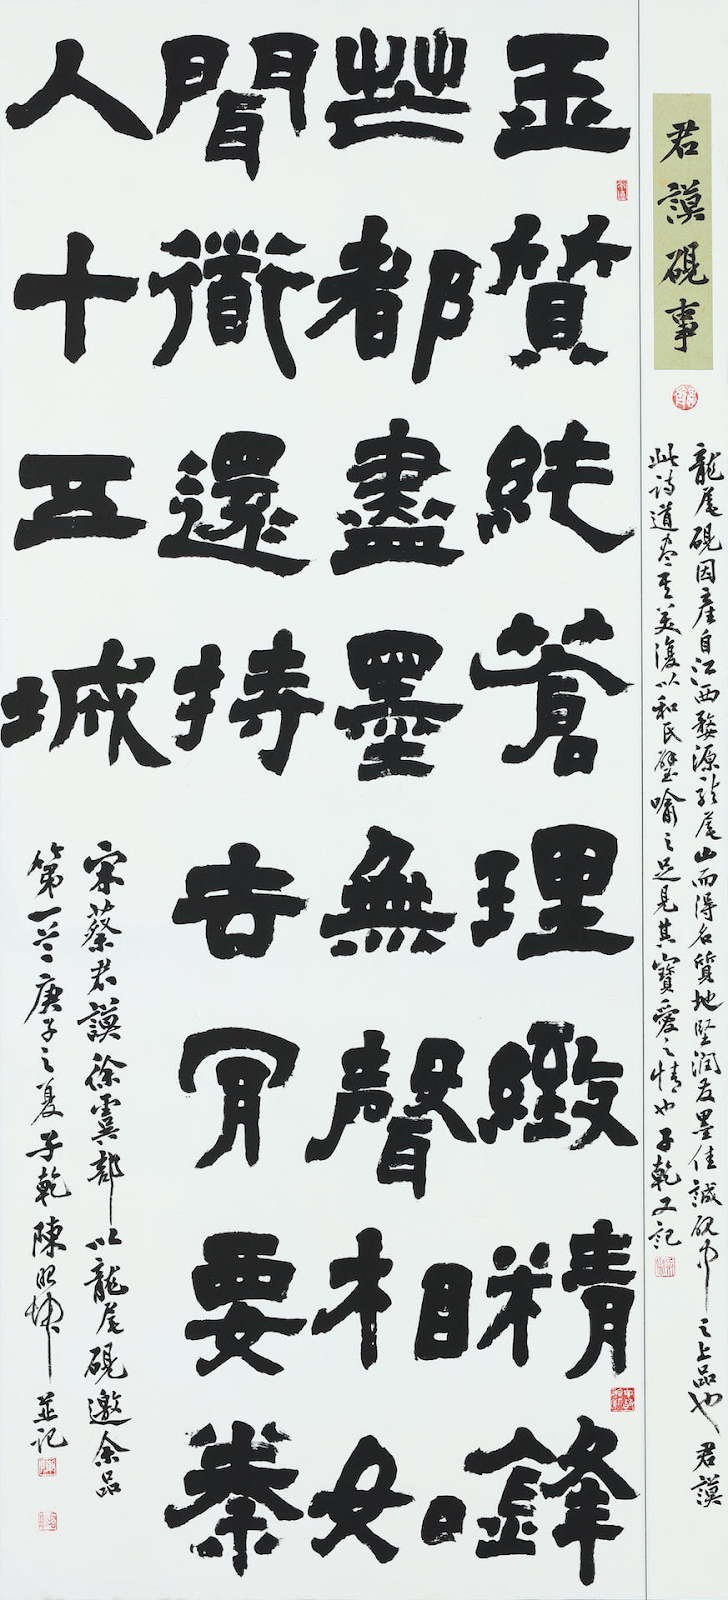 君謨硯事
龍尾硯因產自江西婺源龍尾山而得名質地堅潤發墨佳誠硯中之上品也君謨
此詩道盡其美復以和氏璧喻之足見其寶愛之情也子乾又記
玉質純蒼理緻精鋒
芒都盡墨無聲相如
聞衜還持去肎要秦
人十五城
宋蔡君謨徐虞部以龍尾硯邀余品
第一首庚子之夏子乾陳昭坤並記